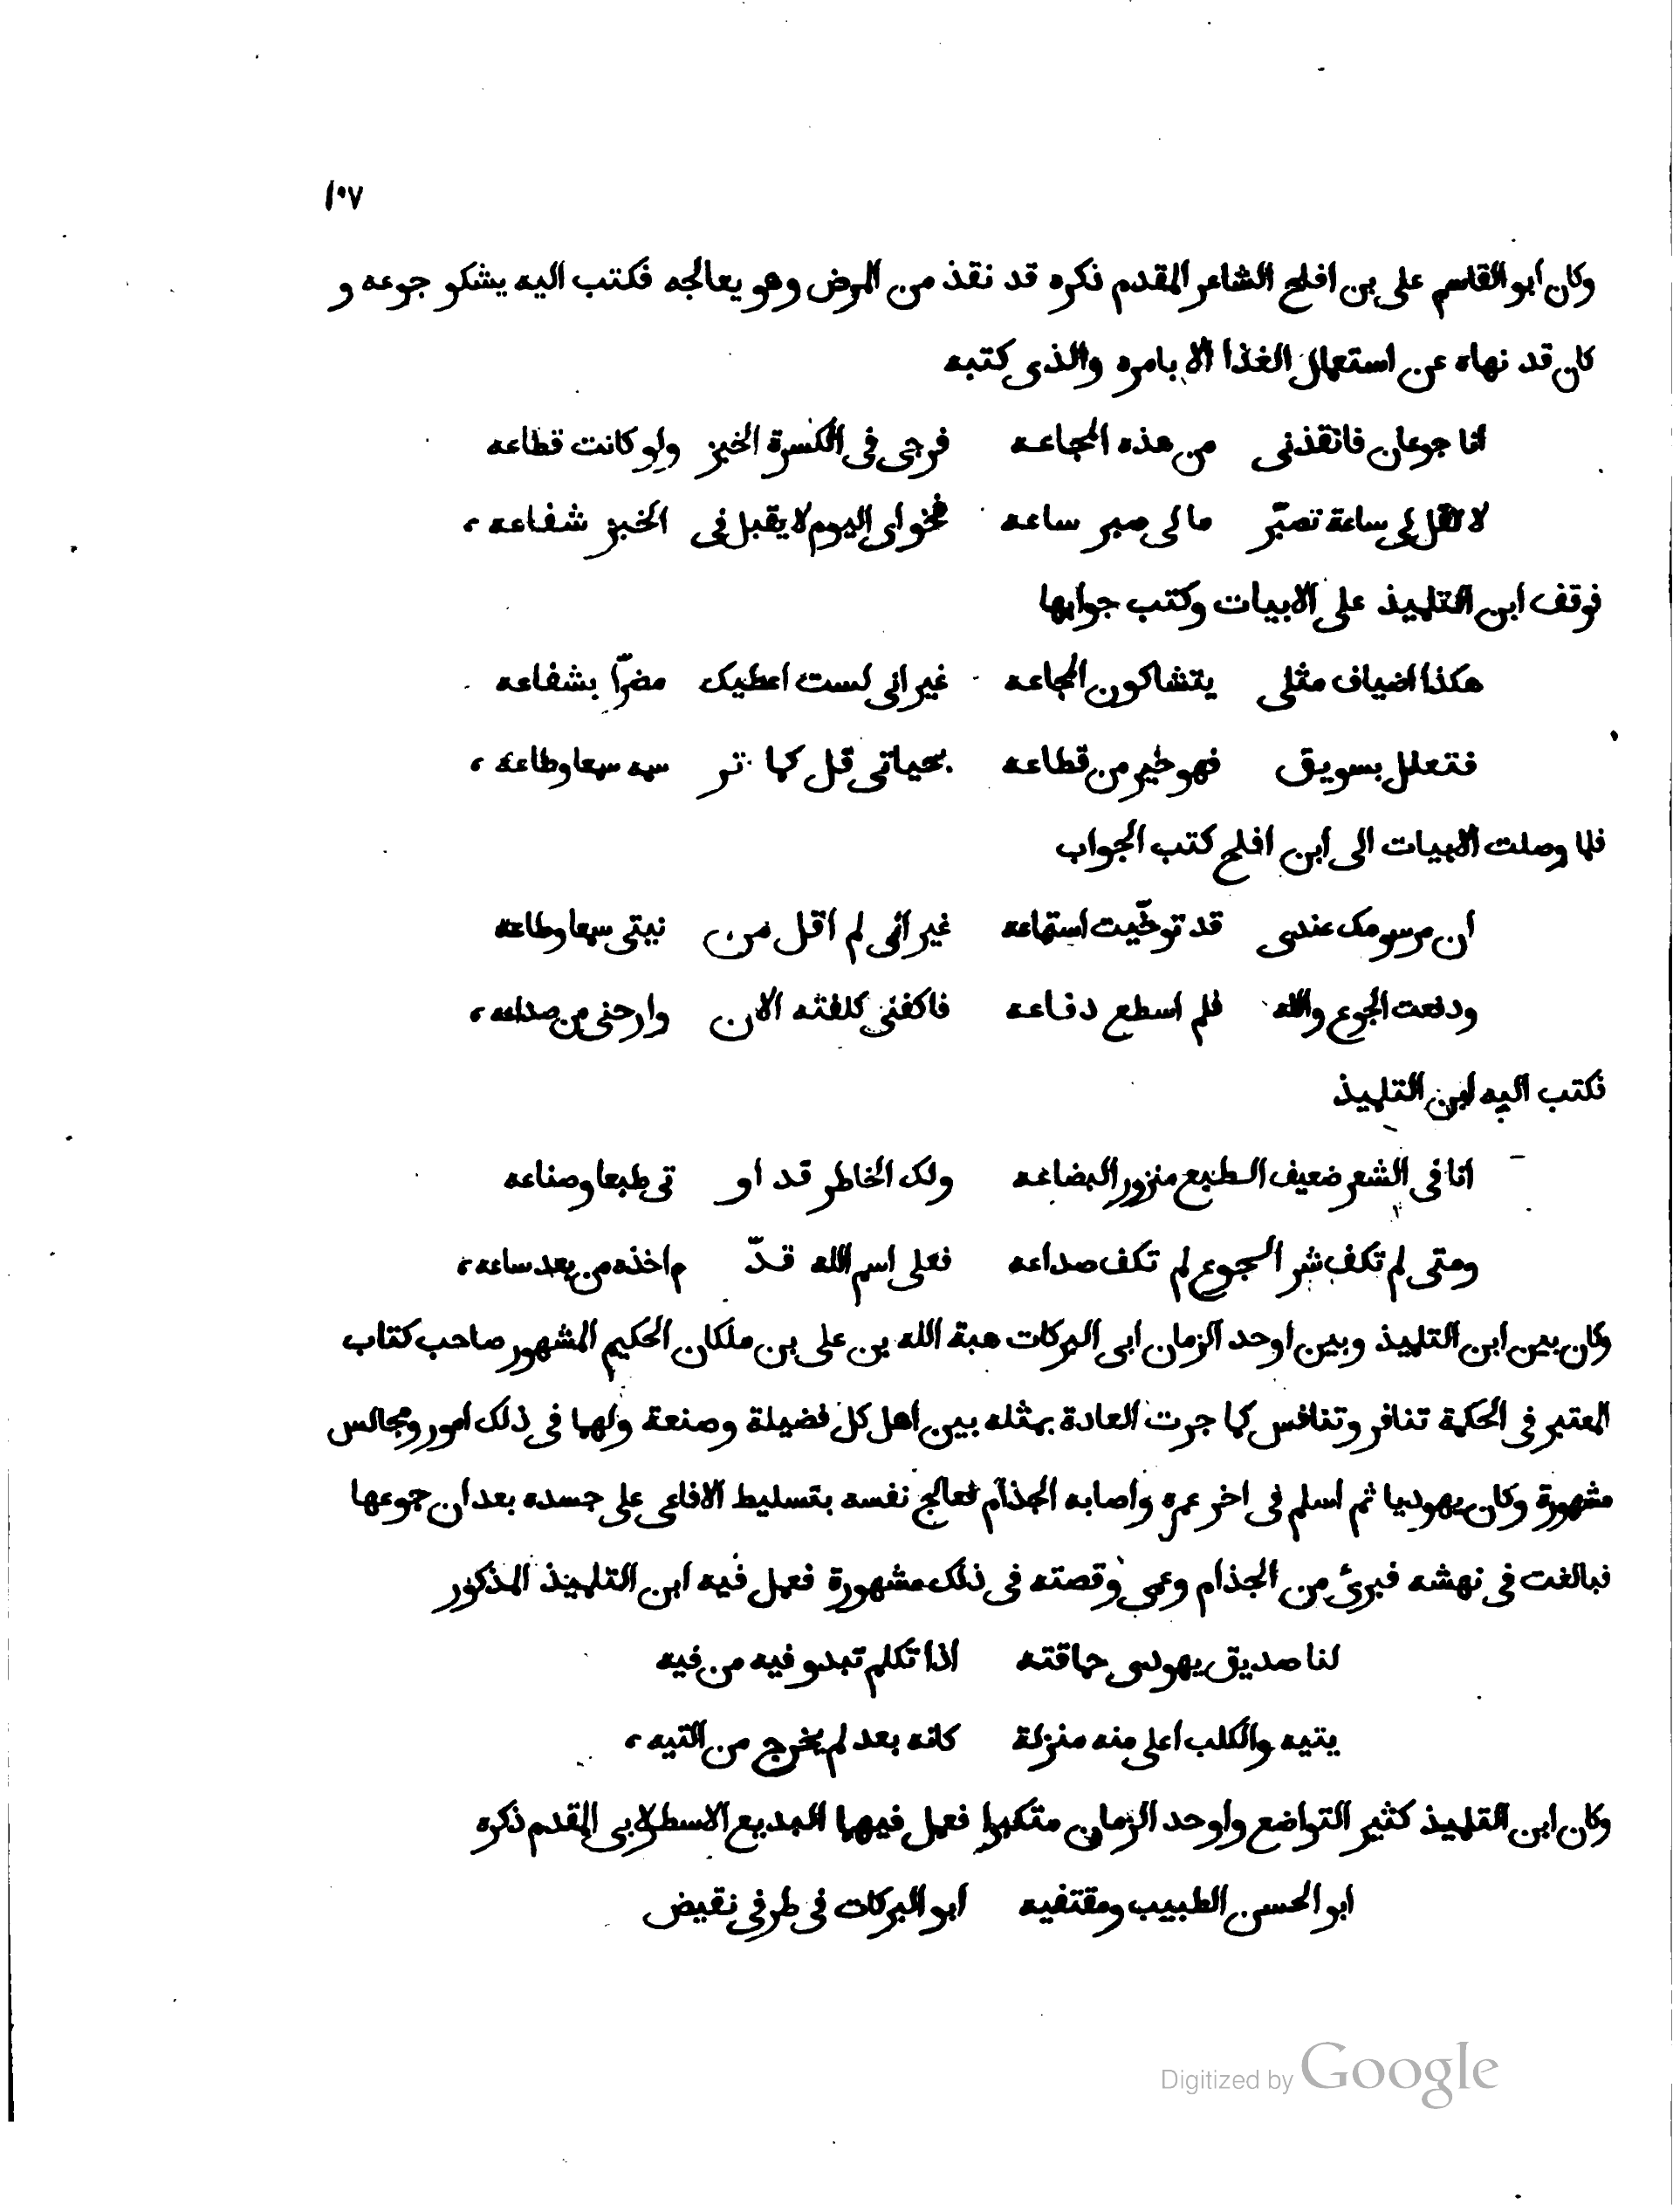 ١٠٧
وكان ابو القاسم على بن افلح الشاعر المقدم ذكره قد نقذ من المرض وهو يعالجه فكتب اليه يشكو جوعه و
كان قد نهاه عن استعمال الغذا الا بامره والذى كتبه
انا جوعان فانقذنى من هذه المجاعه فرجى فى الكسرة الخبز ولو كانت قطاعه
لا تقل لى ساعة تصبّر ما لى صبر ساعه فخواى اليوم لا يقبل فى الخبز شفاعه،
فوقف ابن التلميذ على الابيات وكتب جوابها
هكذا اضياف مثلى يتشاكون المجاعه غير انى لست اعطيك مضرّا بشفاعه
فتعلل بسويق فهو خير من قطاعه بحياتى قل كما تر سمه سمعا وطاعة،
فلما وصلت الابيات الى ابن افلح كتب الجواب
ان مرسومك عندى قد توخّيت استماعه غير انّى لم اقل من نيتى سمعا وطاعة
ودفعت الجوع والله فلم اسطع دفاعه فاكفنى كلفته الان وارحنى من صداعه،
فكتب اليه ابن التلميذ
انا فى الشعر ضعيف الطبع منزور البضاعه ولك الخاطر قد او تى طبعا وصناعه
ومتى لم تكف شر الجوع لم تكف صداعه فعلى اسم الله قدّ م اخذه من بعد ساعه،
وكان بين ابن التلميذ وبين اوحد الزمان ابى البركات هبة الله بن على بن ملكان الحكيم المشهور صاحب كتاب
المعتبر فى الحكمة تنافر وتنافس كما جرت العادة بمثله بين اهل كل فضيلة وصنعة ولهما فى ذلك امور ومجالس
مشهورة وكان يهوديا ثم اسلم فى اخر عمره واصابه الجذام فعالج نفسه بتسليط الافاعى على جسده بعد ان جوعها
فبالغت فى نهشه فبرئ من الجذام وعمى وقصته فى ذلك مشهورة فعمل فيه ابن التلميذ المذكور
لنا صديق يهودى حماقته اذا تكلم تبدو فيه من فيه
يتيه والكلب اعلى منه منزلة كانه بعد لم يخرج من التيه،
وكان ابن التلميذ كثير التواضع واوحد الزمان متكبرا فعمل فيهما البديع الاسطرلابى المقدم ذكره
ابو الحسن الطبيب ومقتفيه ابو البركات فى طرفى نقيض
Digitized by Google